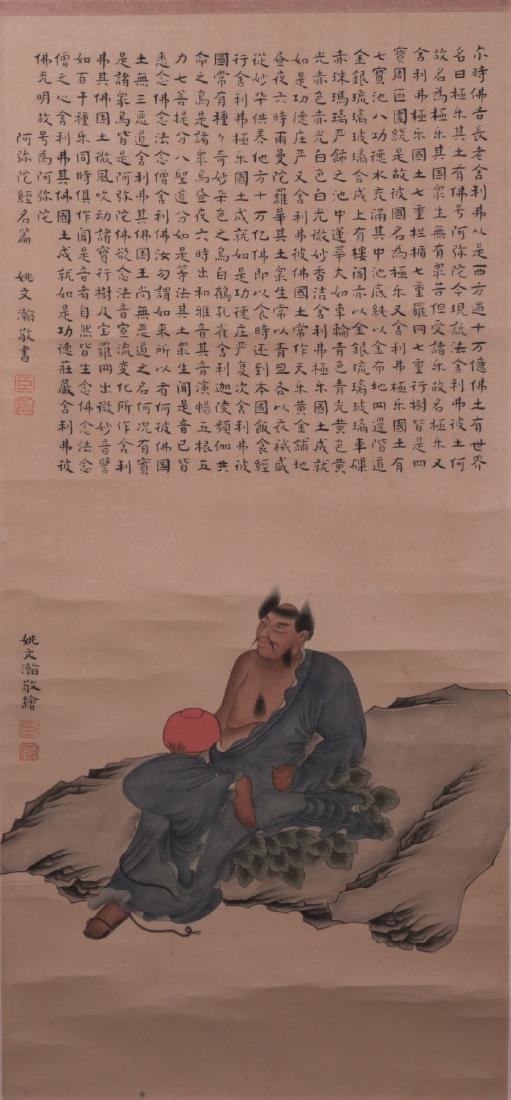 尒時佛告長老舍利弗从是西方過十万億佛土有世界
名曰極乐其土有佛号阿弥陀今現說法舍利弗彼土何
故名為極乐其国衆生無有衆苦但受諸乐故名極乐又
舍利弗極乐國土七重栏楯七重羅网七重行樹皆是四
寶周匝圍繞是故彼國名為極乐又舍利弗極乐國土有
七寶池八功德水充滿其中池底純以金布地四邊階道
金銀琉璃玻璃合成上有楼阁亦以金銀琉璃玻璃車磲
赤珠瑪瑙严飾之池中莲華大如車輪青色青光黄色黄
光赤色赤光白色白光微妙香洁舍利弗極乐國土成就
如是功德庄严又舍利弗彼佛國土常作天乐黄金鋪地
昼夜六時雨曼陀羅華其土衆生常以青旦各以衣裓盛
從妙华供养他方十万亿佛即以食時还到本國飯食經
行舍利弗極乐國土成就如是功德庄严夏次舍利弗彼
國常有種々奇妙杂色之鳥白鹤孔雀舍利迦陵頻伽共
命之鳥是諸衆鳥昼夜六時出和雅音其音演暢五根五
力七菩提分八聖道分如是等法其土衆生闻是音已皆
悉念佛念法念僧舍利佛汝勿謂如来所以者何彼佛国
土無三恶道舍利弗其佛国王尚無恶道之名何况有實
是諸衆鳥皆是阿弥陀佛欲念法音宣流变化所作舍利
弗其佛国土微风吹动諸寶行樹及宝羅网出微妙音譬
如百千種乐同時俱作闻是音者自然皆生念佛念法念
僧之心舍利弗其佛國土成就如是功德莊嚴舍利弗彼
佛光明故号為阿弥陀
阿弥陀經名篇
姚文瀚敬書
姚文瀚敬繪